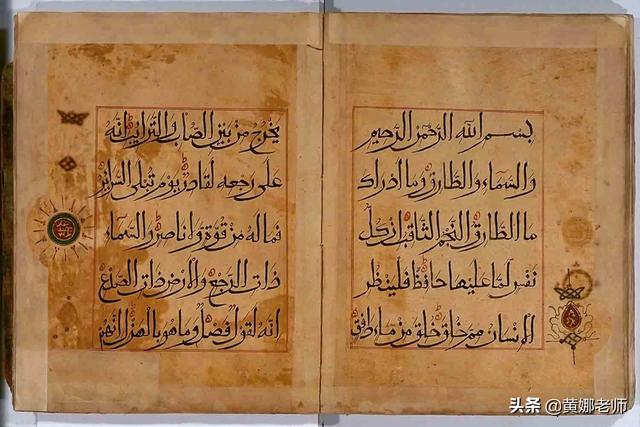 بسم الله الرحمن الرحيم
والسماء والطارق وما ادراك
ما الطارق النجم الثاقب ان كل
نفس لما عليها حافظ فلينظر
الانسان مم خلق خلق من ماء دافق
يخرج من بين الصلب والترائب انه
على رجعه لقادر يوم تبلى السرائر
فما له من قوة ولا ناصر والسماء
ذات الرجع والارض ذات الصدع
انه لقول فصل وما هو بالهزل انهم
头条 @黄娜老师